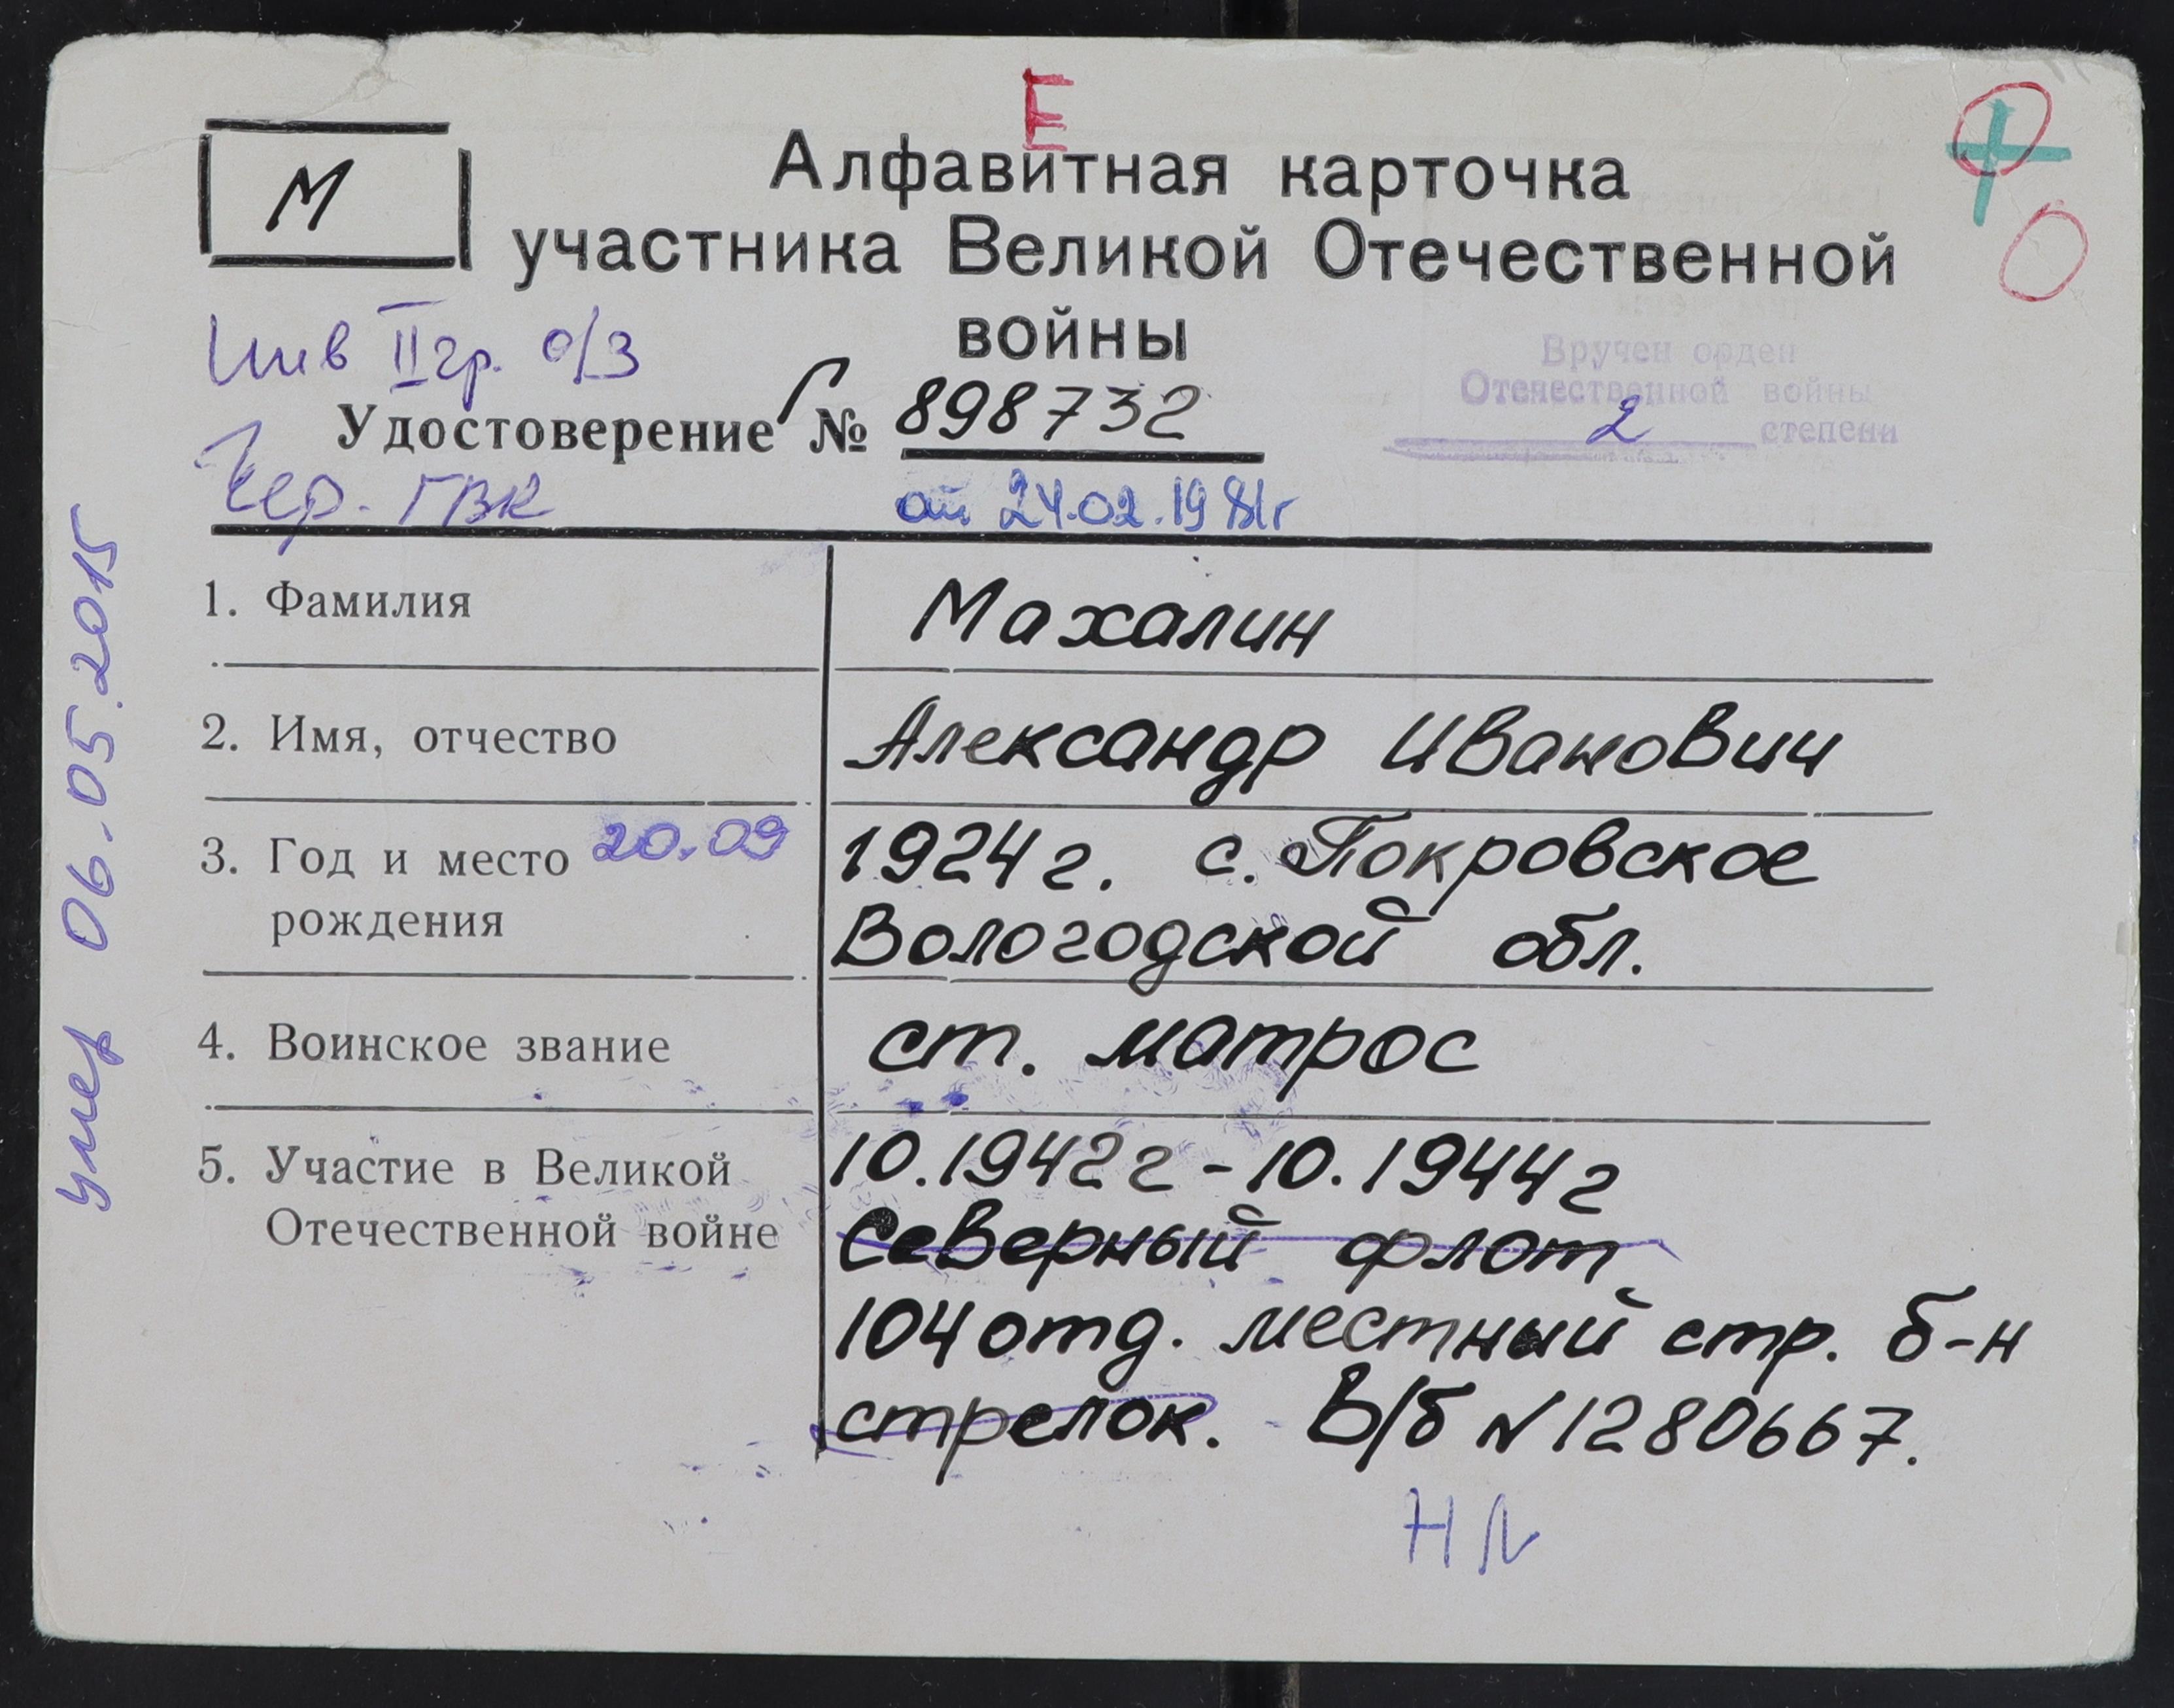 Е
М
Алфавитная карточка
участника Великой Отечественной
войны
Инв II гр. о/з
Вручен орден
Отечественной войны
2 степени
Удостоверение Г № 898732
Чер. ГВК
от 24.02.1981г
умер 06.05.2015
1. Фамилия
Махалин
2. Имя, отчество
Александр Иванович
3. Год и место 20.09
рождения
1924 г. с. Покровское
Вологодской обл.
4. Воинское звание
ст. матрос
5. Участие в Великой
Отечественной войне
10.1942г - 10.1944г
Северный флот
104 отд. местный стр. б-н
стрелок. В/б N 1280667.